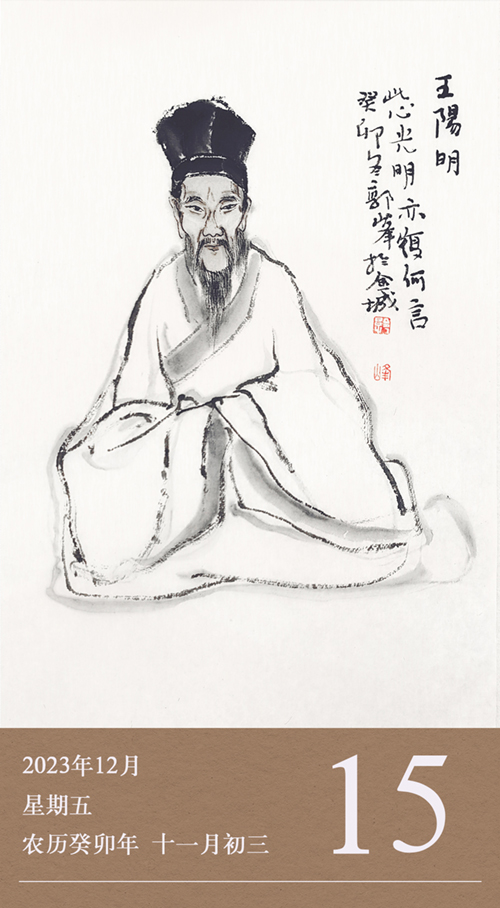 王陽明
此心光明亦復何言
癸卯冬郭峯於金城
峰
2023年12月
星期五
农历癸卯年 十一月初三
15